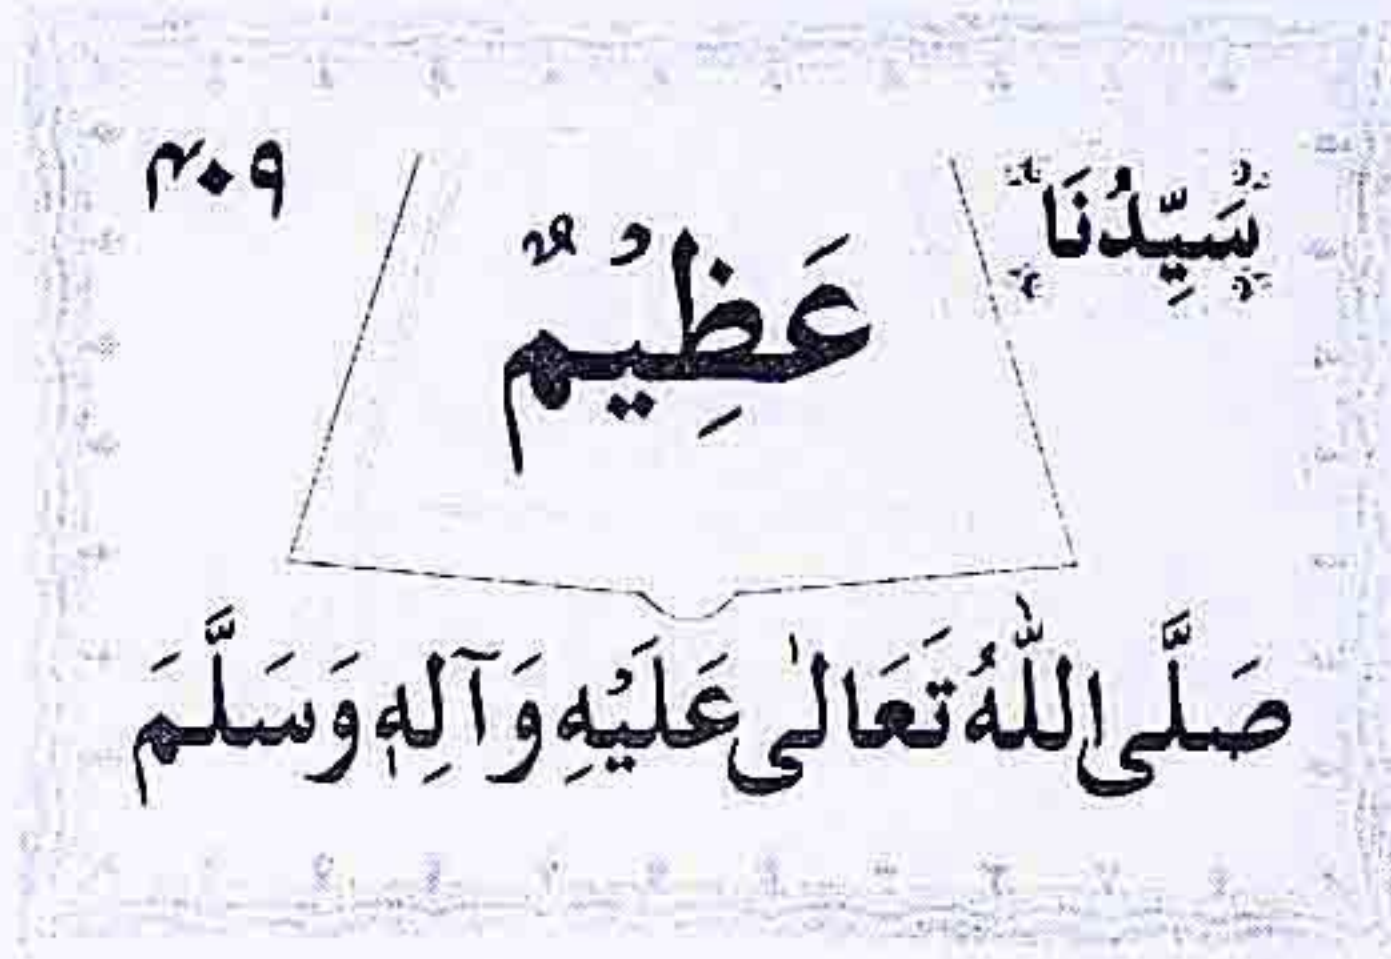 سَيِّدُنَا
۴۰۹
عَظِيْمٌ
صَلَّى اللّٰهُ تَعَالٰى عَلَيْهِ وَآلِهٖ وَسَلَّمَ